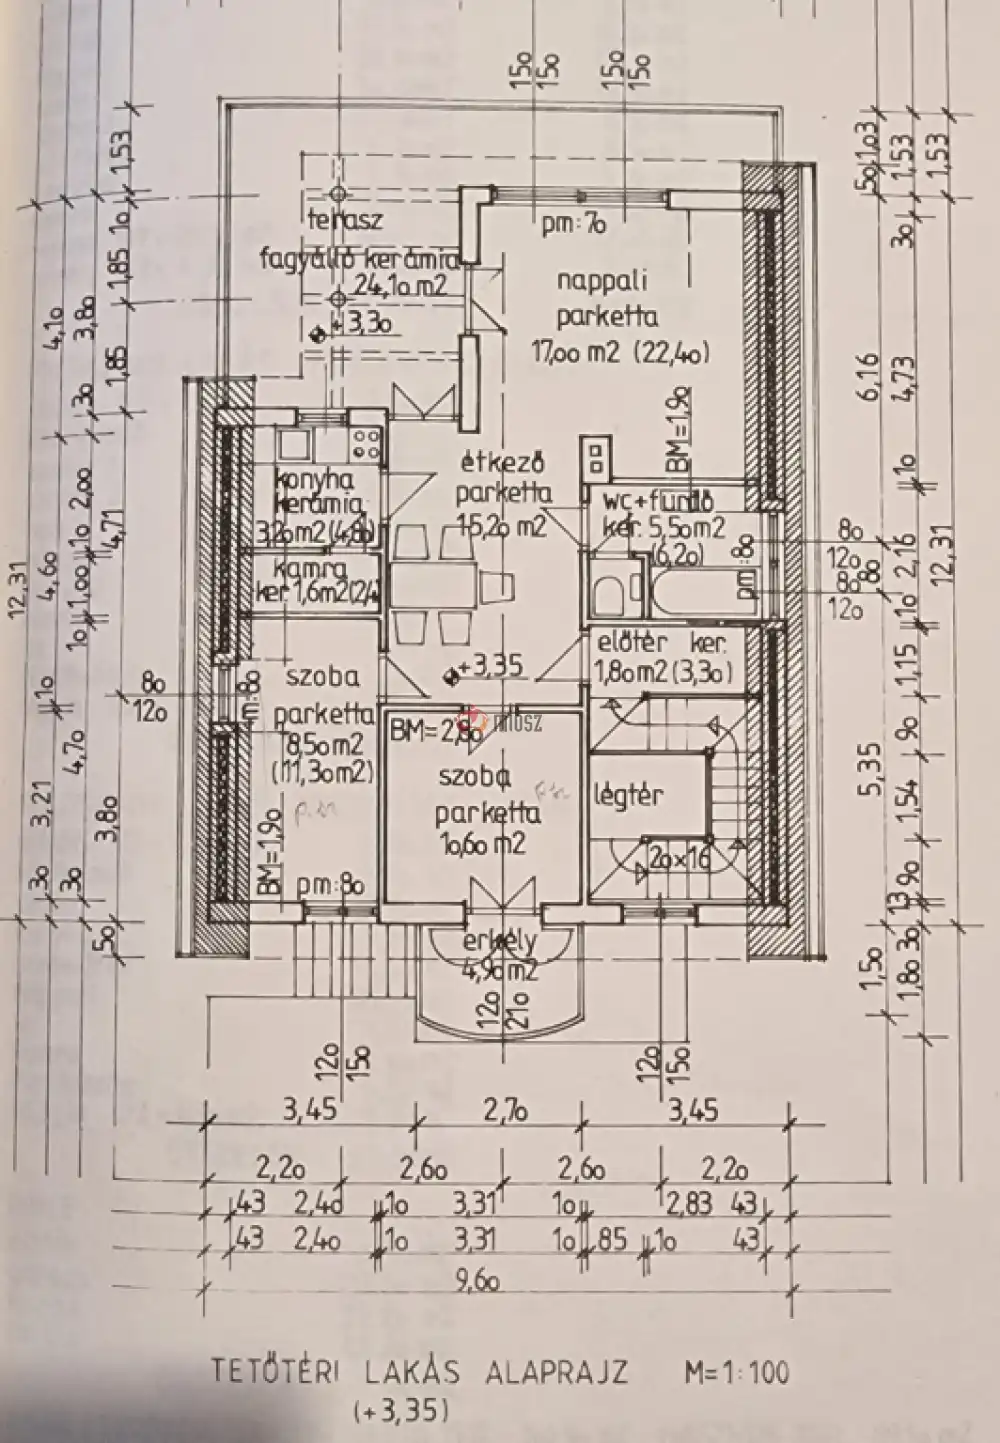 15o 15o 15o 15o
terasz
fagyálló kerámia
24,1o m2
+3,3o
pm:7o
nappali
parketta
17,oo m2 (22,4o)
BM=1,9o
konyha
kerámia
3,2o m2(4,8o)
kamra
ker. 1,6m2(2,4)
étkező
parketta
15,2o m2
wc+fürdő
ker. 5,5o m2
(6,2o)
pm:8o
8o
12o
8o 8o
12o
előtér ker.
1,8o m2 (3,3o)
+3,35
szoba
parketta
8,5o m2
(11,3o m2)
BM=1,9o
pm:8o
8o
12o
BM=2,8o
szoba
parketta
1o,6o m2
légtér
2o×16
erkély
4,9o m2
12o 21o
12o 15o
12o 15o
1,53
1o
1,85
1,85
3,8o
3o
4,1o
2,oo
1o
1,oo
1o
4,71
4,6o
12,31
1o
4,7o
3,21
3,8o
3o
3o
5o
1,o3
5o
1,53
1,53
3o
6,16
4,73
1o
2,16
12,31
1o
1,15
9o
5,35
1,54
9o
13
3o
1,5o
1,8o
3,45 2,7o 3,45
2,2o 2,6o 2,6o 2,2o
43 2,4o 1o 3,31 1o 2,83 43
43 2,4o 1o 3,31 1o 85 1o 43
9,6o
TETŐTÉRI LAKÁS ALAPRAJZ M=1:100
(+3,35)